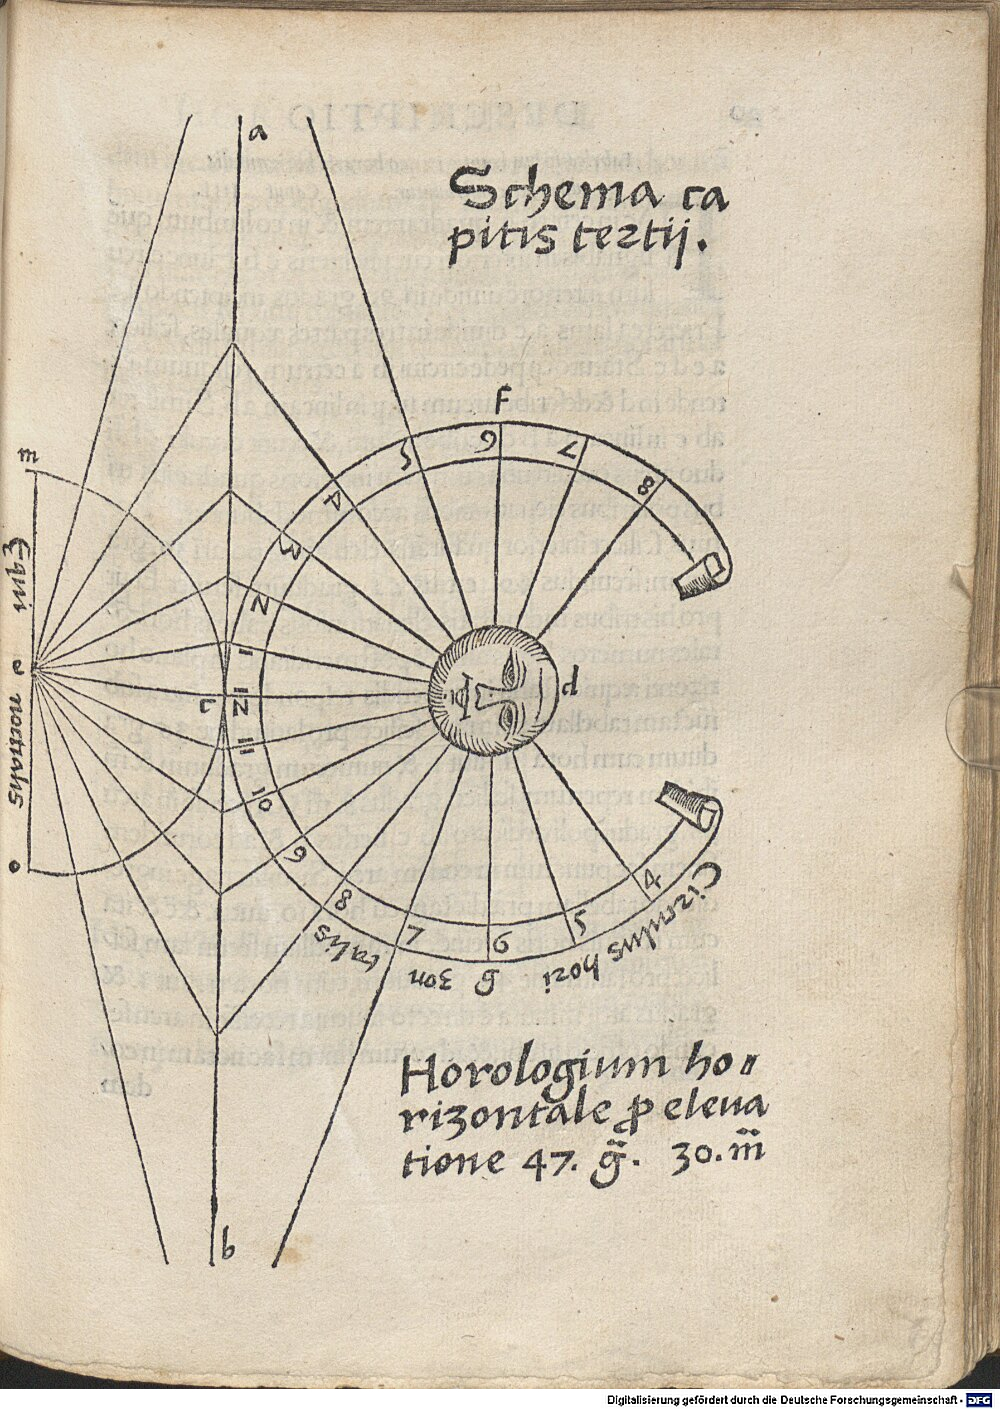 a
Schema ca
pitis tertij.
f
5 6 7 8
4
3
2
1
12
11
10
9
8
7 6 5 4
m
Equi
e noctialis
o
L
d
Circulus hori
g zon
talis
Horologium ho
rizontale ꝓ eleua
tione 47. g̃. 30. m̃
b
Digitalisierung gefördert durch die Deutsche Forschungsgemeinschaft - DFG